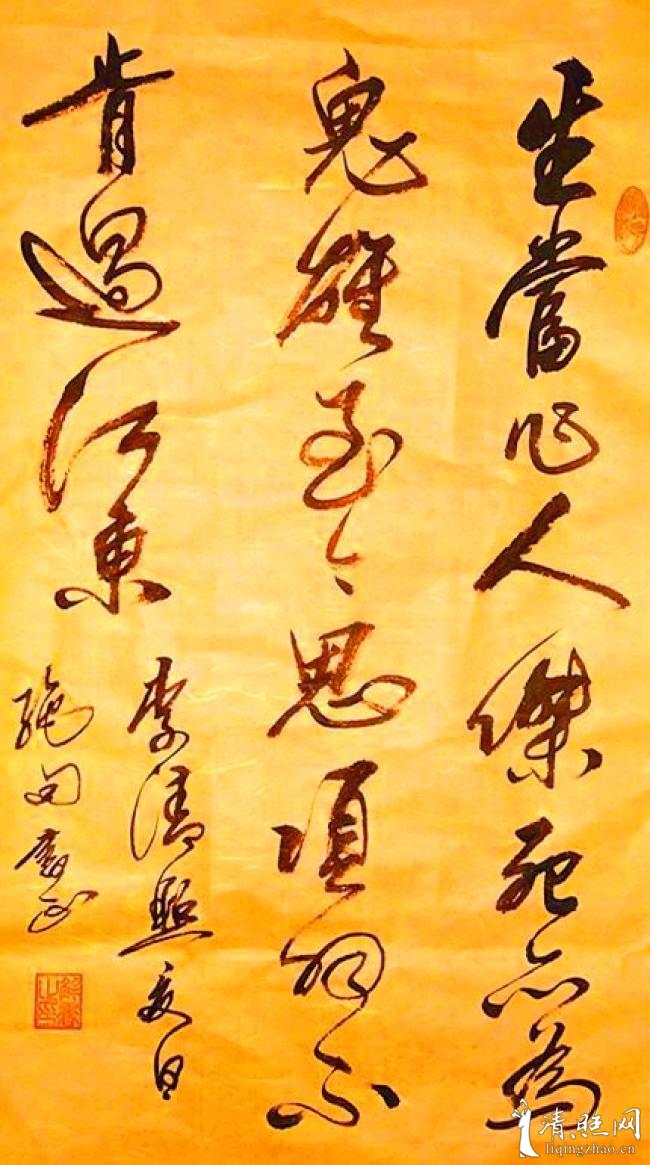 生當作人傑死亦為
鬼雄至今思項羽不
肯過江東
李清照夏日
絕句
清照网
liqingzhao.cn